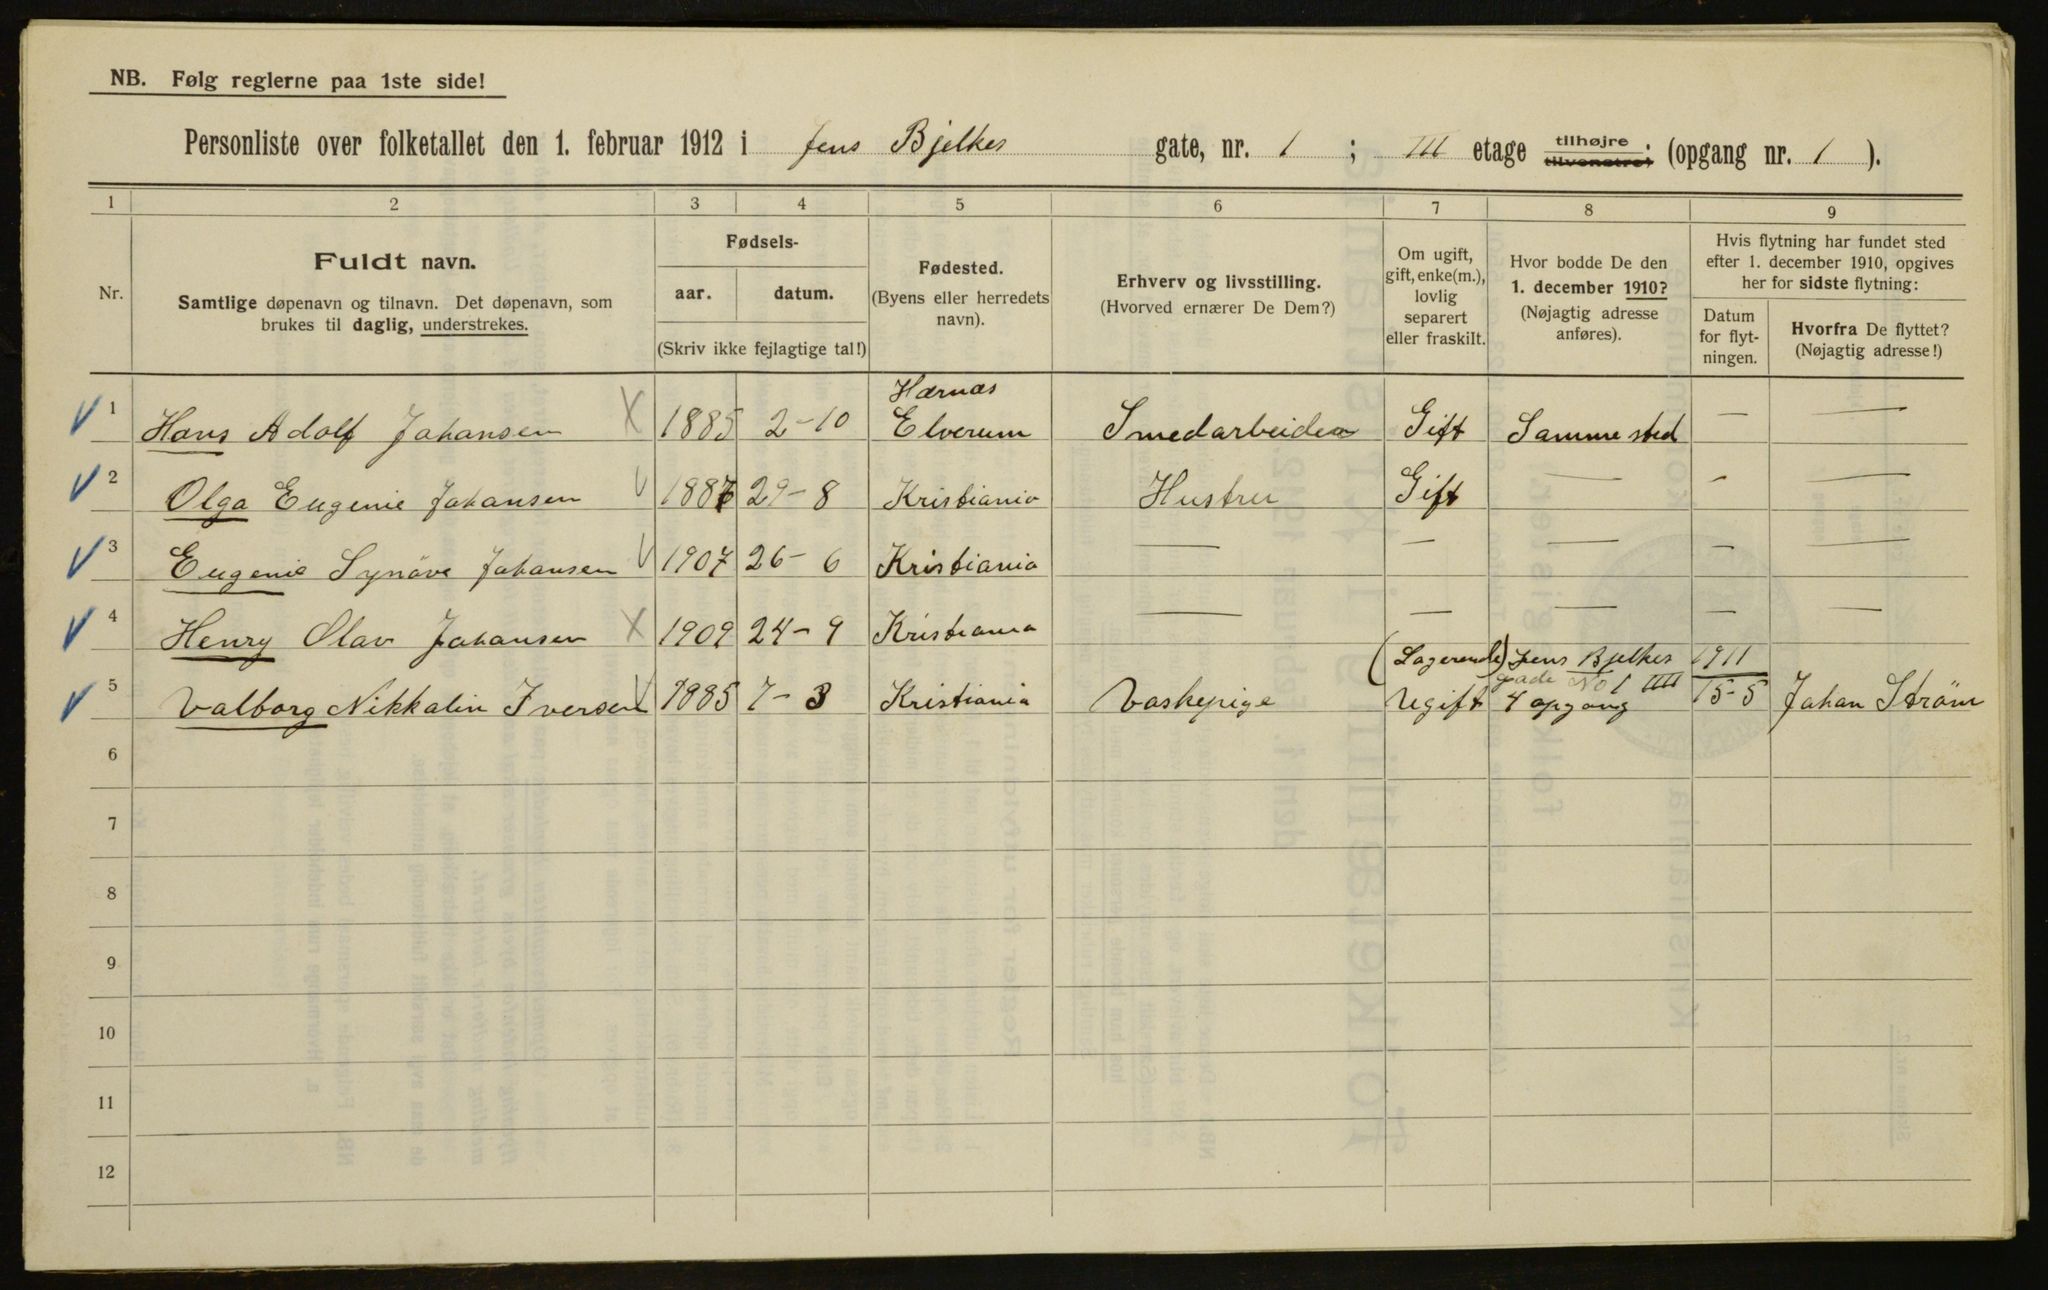 NB. Følg reglerne paa 1ste side!
Personliste over folketallet den 1. februar 1912 i Jens Bjelkes gate, nr. 1 ; III etage tilhøjre. tilvenstre, (opgang nr. 1 ).
1 2 3 4 5 6 7 8 9
Nr.
Fuldt navn.
Samtlige døpenavn og tilnavn. Det døpenavn, som
brukes til daglig, understrekes.
Fødsels-
aar. datum.
(Skriv ikke fejlagtige tal!)
Fødested.
(Byens eller herredets
navn).
Erhverv og livsstilling.
(Hvorved ernærer De Dem?)
Om ugift,
gift, enke(m.),
lovlig
separert
eller fraskilt.
Hvor bodde De den
1. december 1910?
(Nøjagtig adresse
anføres).
Hvis flytning har fundet sted
efter 1. december 1910, opgives
her for sidste flytning:
Datum
for flyt-
ningen.
Hvorfra De flyttet?
(Nøjagtig adresse!)
Hærnæs
1 Hans Adolf Johansen X 1885 2-10 Elverum Smedarbeider Gift Samme sted — —
2 Olga Eugenie Johansen V 1887 29-8 Kristiania Hustru Gift — - —
3 Eugenie Synöve Johansen V 1907 26-6 Kristiania — — — — —
4 Henry Olav Johansen X 1909 24-9 Kristiania — — — — —
(Logerende) Jens Bjelkes 1911
gade No 1 IIII
5 Valborg Nikkalin Iversen V 1885 7-3 Kristiania Vaskepige Ugift 4 opgang 15-5 Johan Ström
6
7
8
9
10
11
12